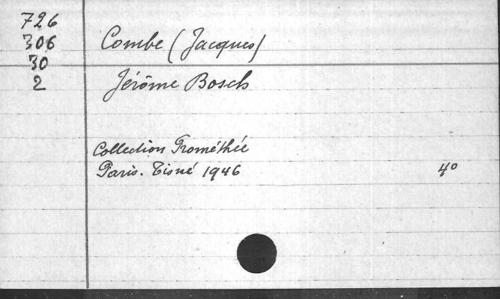 726
306
30
2
Combe (Jacques)
Jérôme Bosch
Collection Prométhée
Paris. Tisné 1946
4°